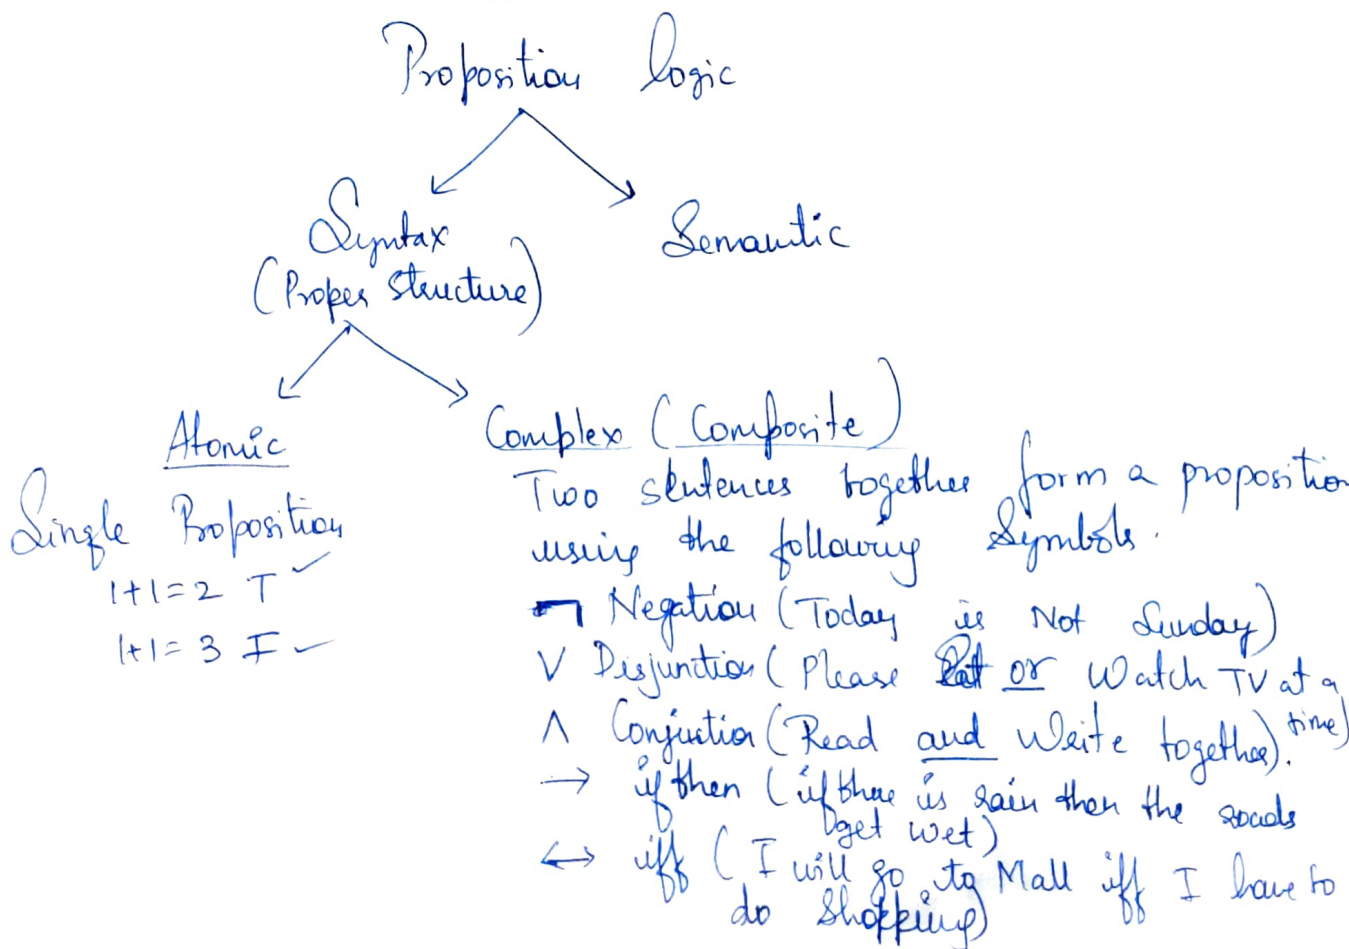 Proposition logic
Syntax
(Proper structure)
Semantic
Atomic
Single Proposition
1+1=2 T ✓
1+1=3 F ✓
Complex (Composite)
Two sentences together form a proposition
using the following Symbols.
¬ Negation (Today is Not Sunday)
∨ Disjunction (Please Eat or Watch TV at a time)
∧ Conjuction (Read and Write together).
→ if then (if there is rain then the roads
get wet)
↔ iff (I will go to Mall iff I have to
do Shopping)